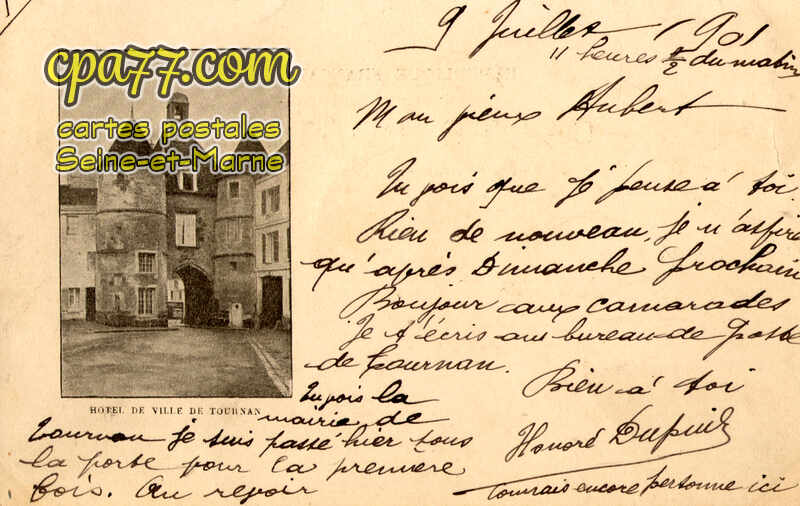 cpa77.com
cartes postales
Seine-et-Marne
9 Juillet 1901
11 heures 1/2 du matin
Mon vieux Hubert
Tu vois que je pense à toi.
Rien de nouveau, je n'aspire
qu'après Dimanche prochain
Bonjour aux camarades
je t'écris au bureau de poste
de Tournan.
Bien à toi
Honoré Dupuis
HOTEL DE VILLE DE TOURNAN
Tu vois la
mairie de
Tournan je suis passé hier sous
la porte pour la première
fois. Au revoir
connais encore personne ici